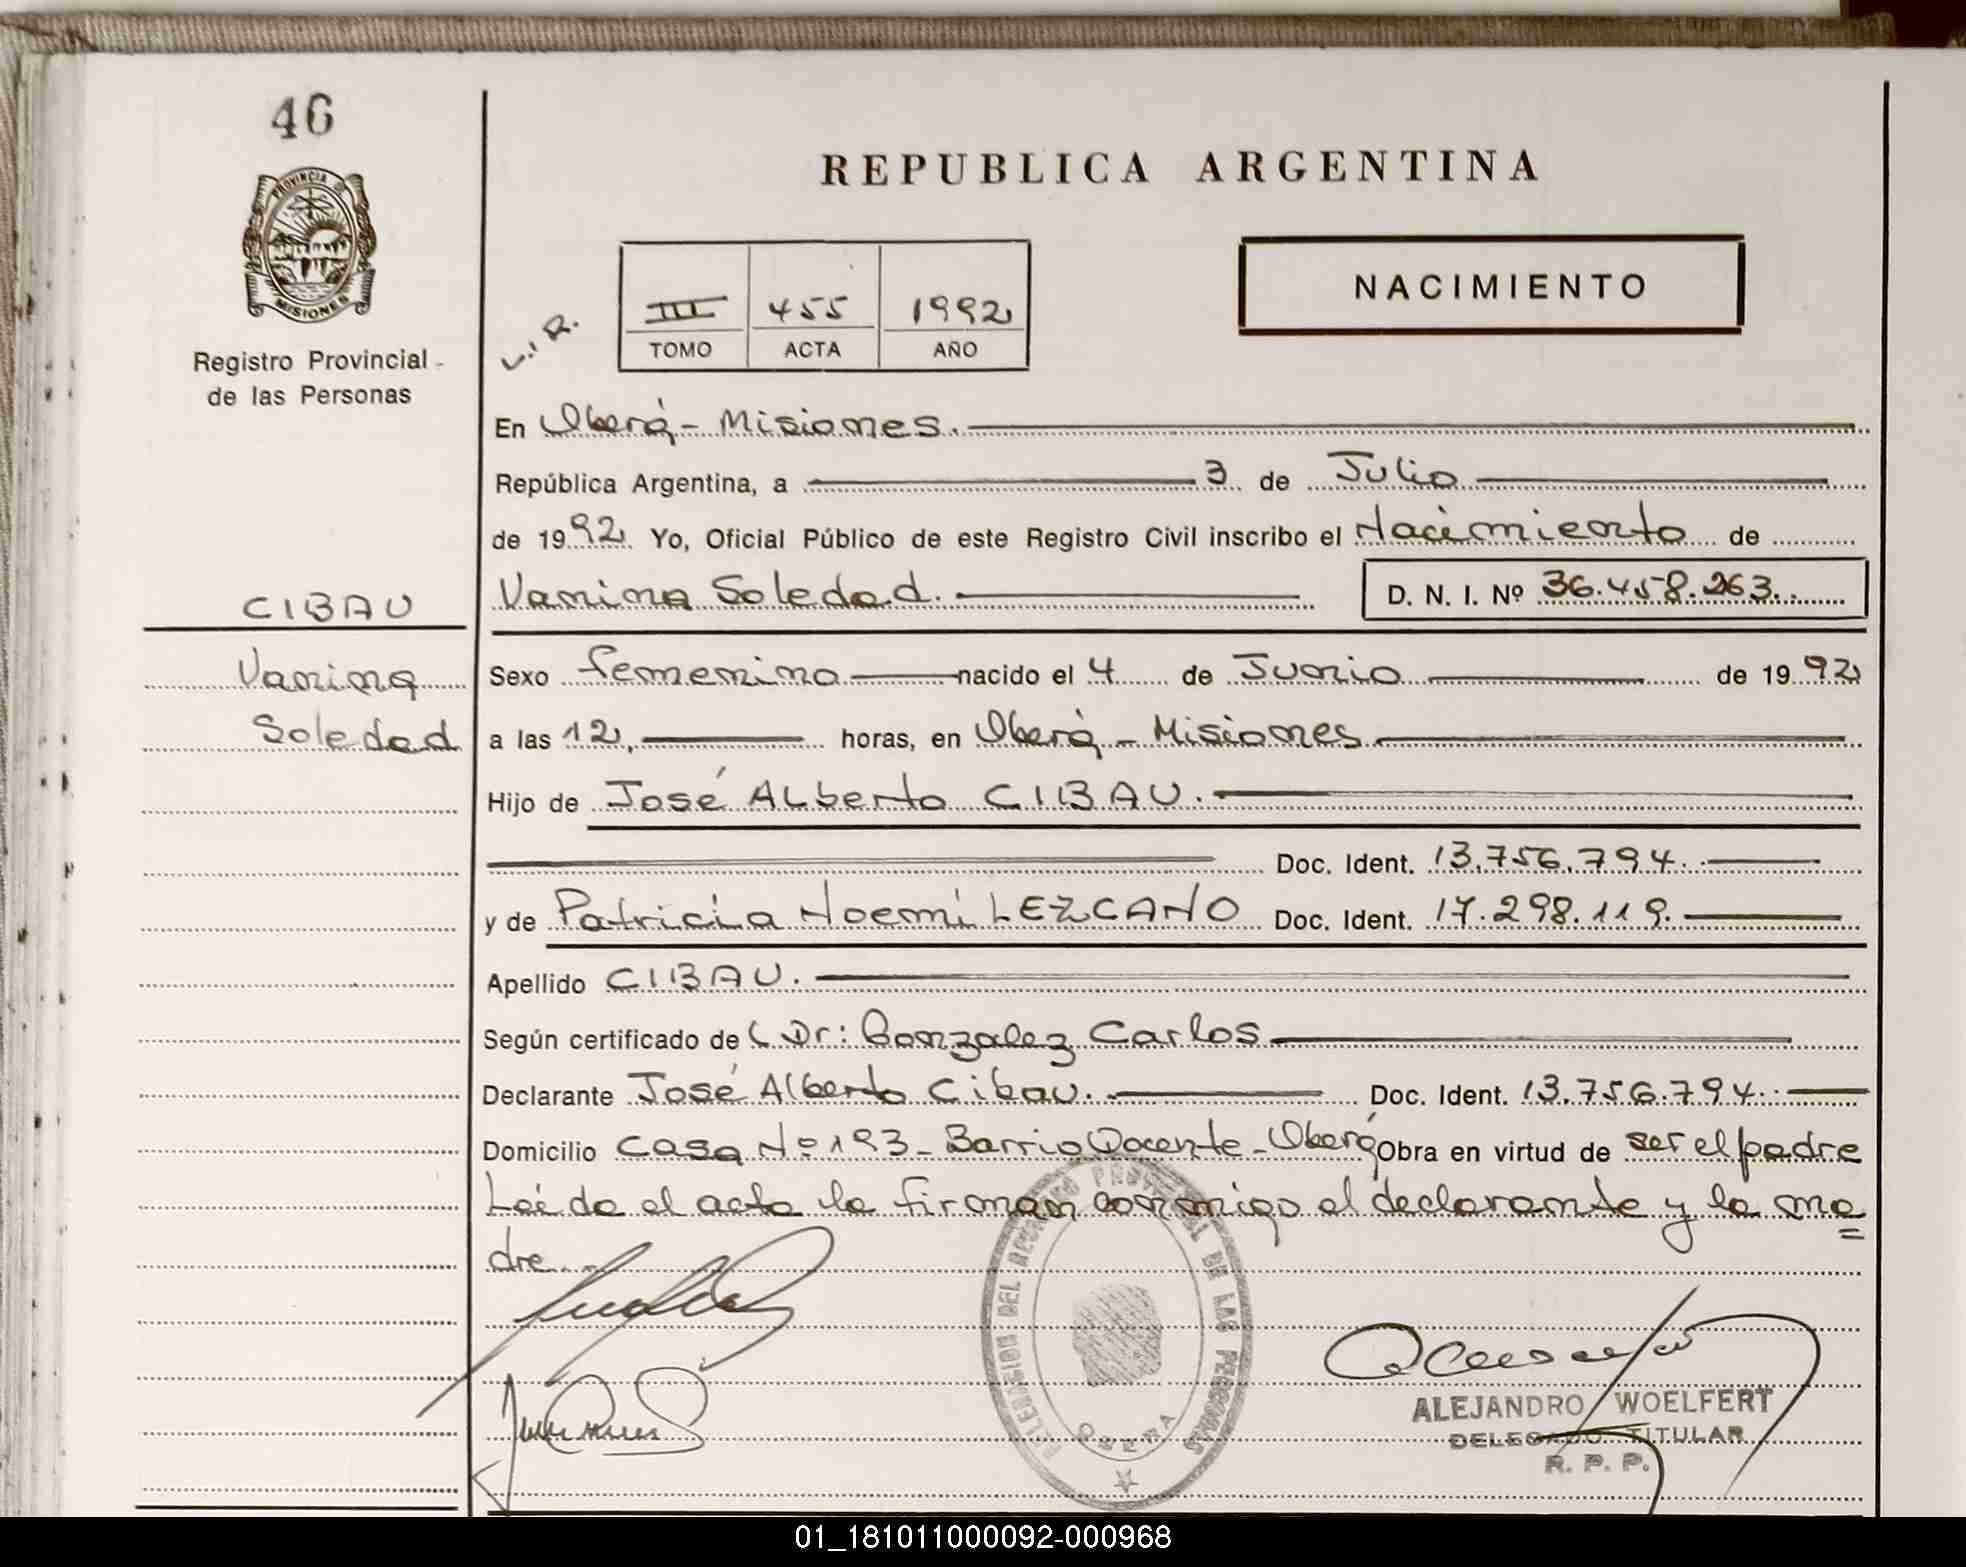 46
PROVINCIA
MISIONES
Registro Provincial
de las Personas
CIBAU
Vanina
Soledad
REPUBLICA ARGENTINA
III 455 1992
TOMO ACTA AÑO
NACIMIENTO
En Oberá - Misiones.
República Argentina, a 3 de Julio
de 1992 Yo, Oficial Público de este Registro Civil inscribo el Nacimiento de
Vanina Soledad. D. N. I. Nº 36.458.263.
Sexo femenino nacido el 4 de Junio de 1992
a las 12, horas, en Oberá - Misiones
Hijo de José Alberto CIBAU.
Doc. Ident. 13.756.794.
y de Patricia Noemí LEZCANO Doc. Ident. 17.298.119.
Apellido CIBAU.
Según certificado de Dr: Gonzalez Carlos
Declarante José Alberto Cibau. Doc. Ident. 13.756.794.
Domicilio Casa Nº 193 - Barrio Docente - Oberá Obra en virtud de ser el padre
Leída el acta la firman conmigo el declarante y la ma=
dre.
DELEGACION DEL REGISTRO PROVINCIAL DE LAS PERSONAS
OBERA
ALEJANDRO WOELFERT
DELEGADO TITULAR
R. P. P.
01_181011000092-000968